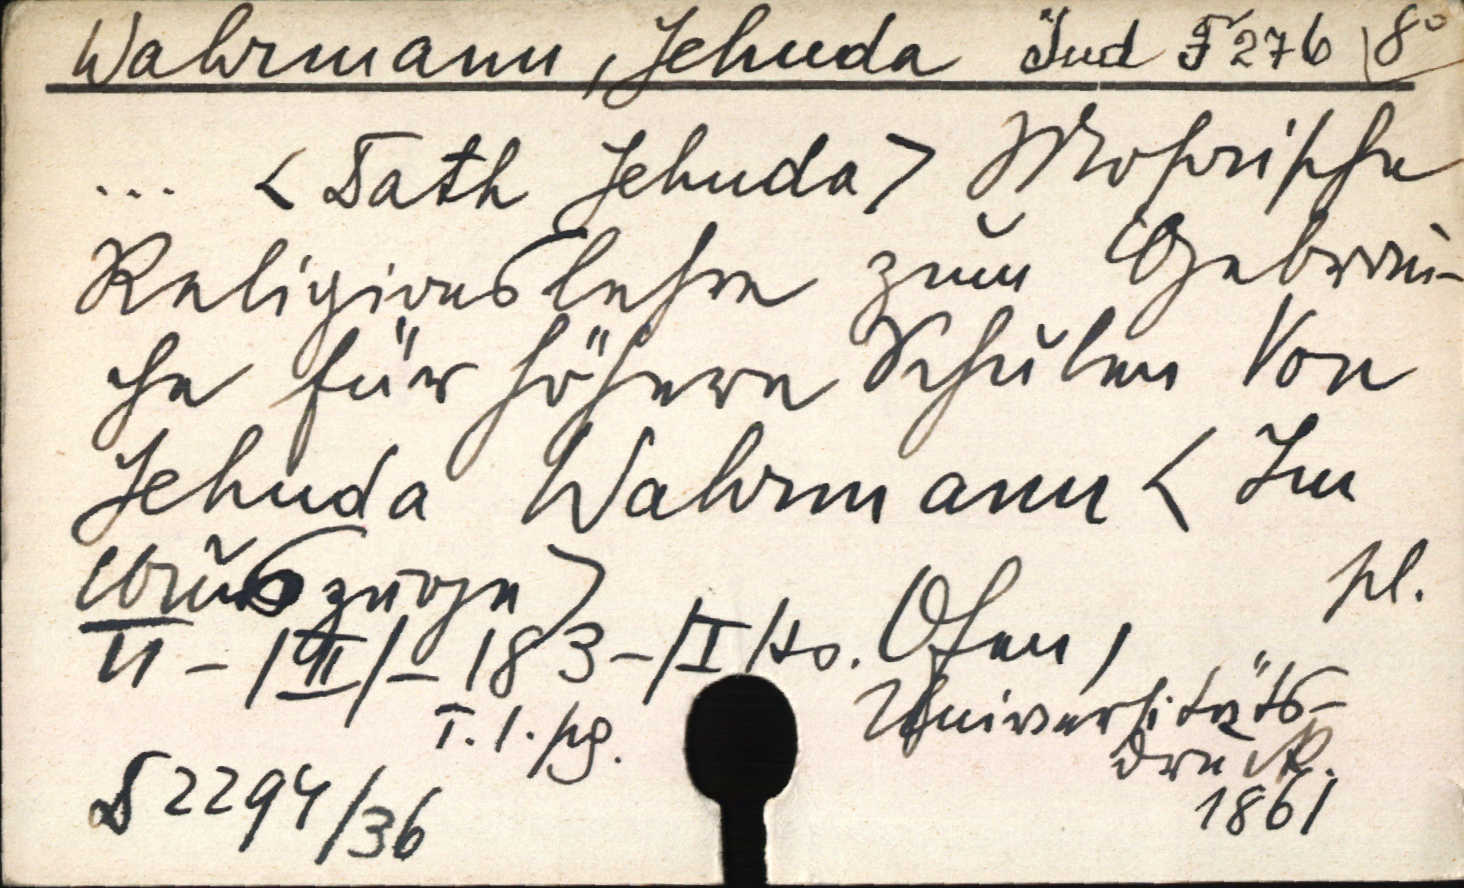 Wahrmann, Jehuda Jud F 276 8°
... <Dath Jehuda> Mosaische
Religionslehre zum Gebrau-
che für höhere Schulen Von
Jehuda Wahrmann <Im
Auszuge>
II - /III/ - 183 - /I/ Ofen, pl.
Universitäts-
T. 1. pg. druck.
D 2294/36 1861